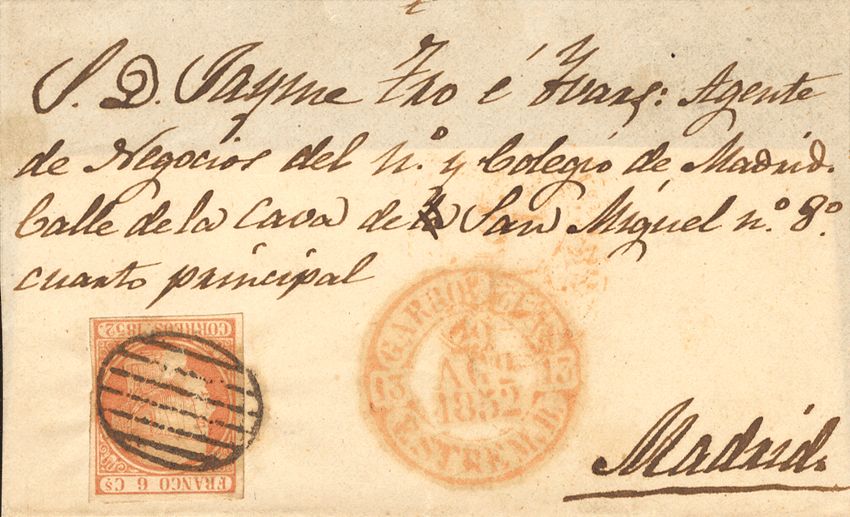 S. D. Jayme Tro é Yvars: Agente
de Negocios del n.º y Colegio de Madrid.
Calle de la Cava de San Miguel n.º 8.º
cuarto principal
CORREOS 1852
FRANCO 6 Cs
13 AGO. 13
1852
ESTREM. B.
Madrid.